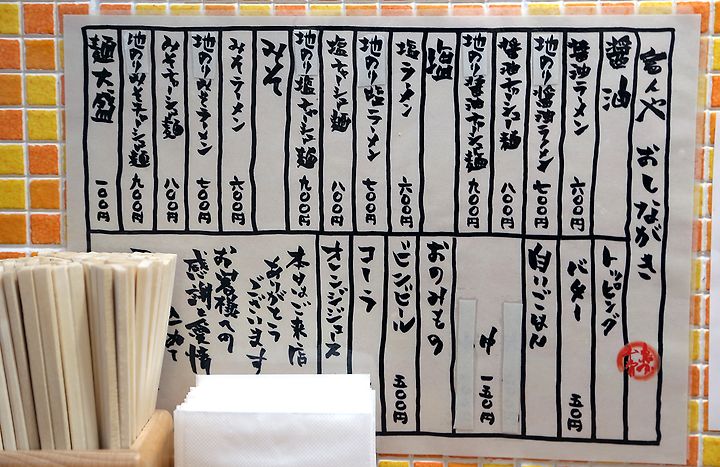 おしながき
醤油
醤油ラーメン 六〇〇円
地のり醤油ラーメン 七〇〇円
醤油チャーシュー麺 八〇〇円
地のり醤油チャーシュー麺 九〇〇円
塩
塩ラーメン 六〇〇円
地のり塩ラーメン 七〇〇円
塩チャーシュー麺 八〇〇円
地のり塩チャーシュー麺 九〇〇円
みそ
みそラーメン 六〇〇円
地のりみそラーメン 七〇〇円
みそチャーシュー麺 八〇〇円
地のりみそチャーシュー麺 九〇〇円
麺大盛 一〇〇円
トッピング
バター 五〇円
白いごはん
中 一五〇円
おのみもの
ビンビール 五〇〇円
コーラ
オレンジジュース
本日はご来店
ありがとう
ございます
お客様への
感謝と愛情